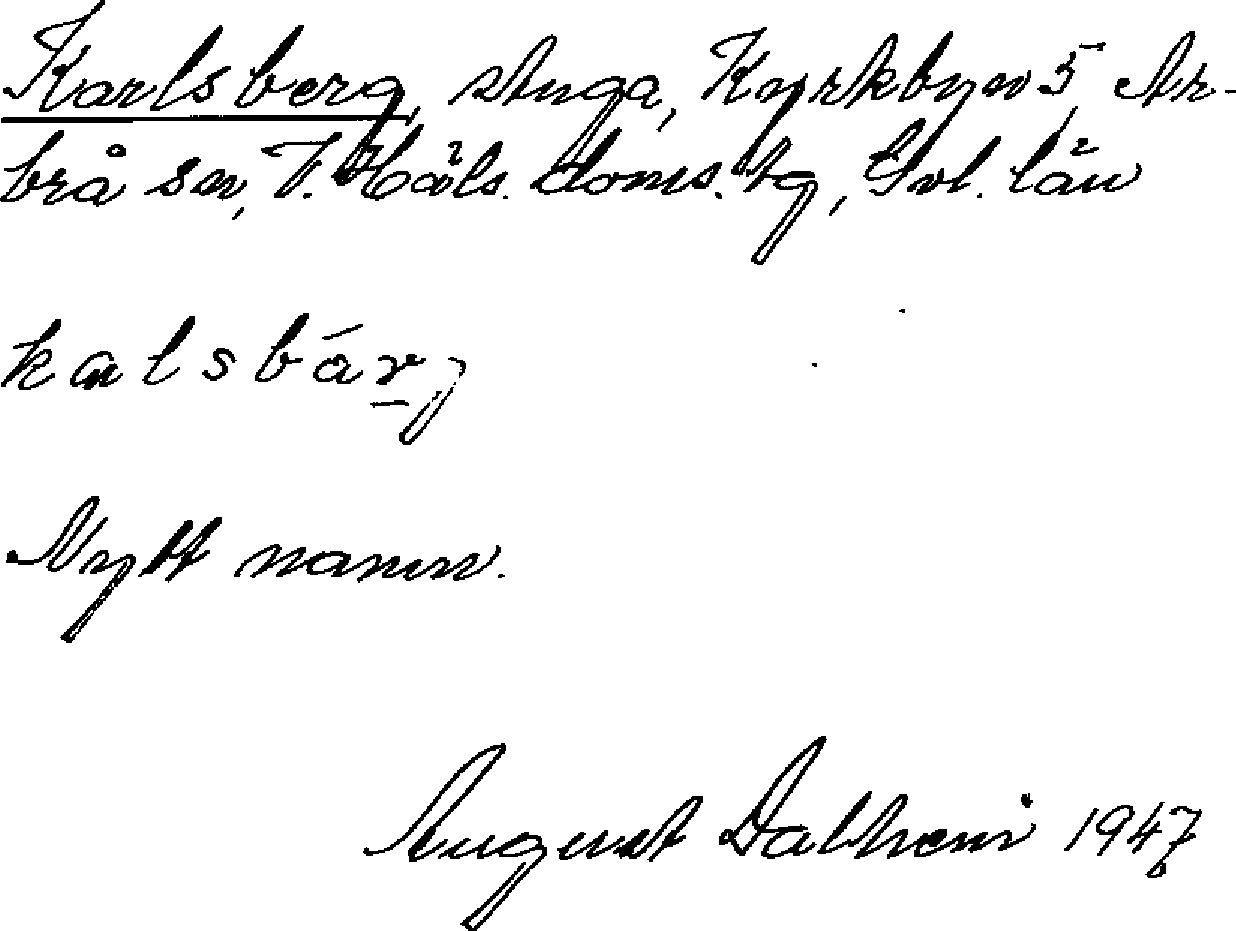 Karlsberg, stuga, Kyrkbyn 5, Ar-
brå sn, V. Häls. doms. tg, Gvl. län
kalsbárj
Nytt namn.
August Dalhem 1947